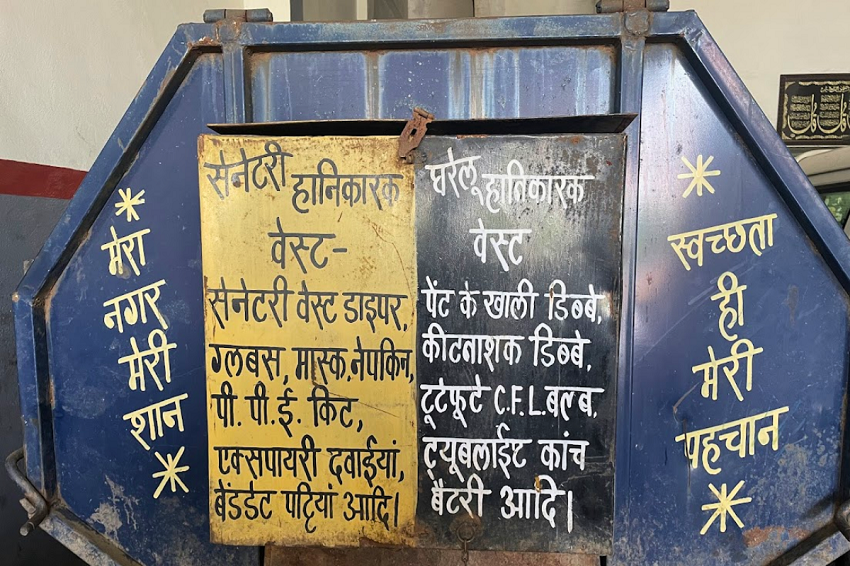 * मेरा
नगर
मेरी
शान *
सेनेटरी हानिकारक
वेस्ट-
सेनेटरी वेस्ट डाइपर,
ग्लबस, मास्क, नेपकिन,
पी. पी. ई. किट,
एक्सपायरी दवाईयां,
बेंडडेट पट्टियां आदि।
घरेलू हानिकारक
वेस्ट
पेंट के खाली डिब्बे,
कीटनाशक डिब्बे,
टूटेफूटे C.F.L. बल्ब,
ट्यूबलाईट कांच
बैटरी आदि।
* स्वच्छता
ही
मेरी
पहचान *